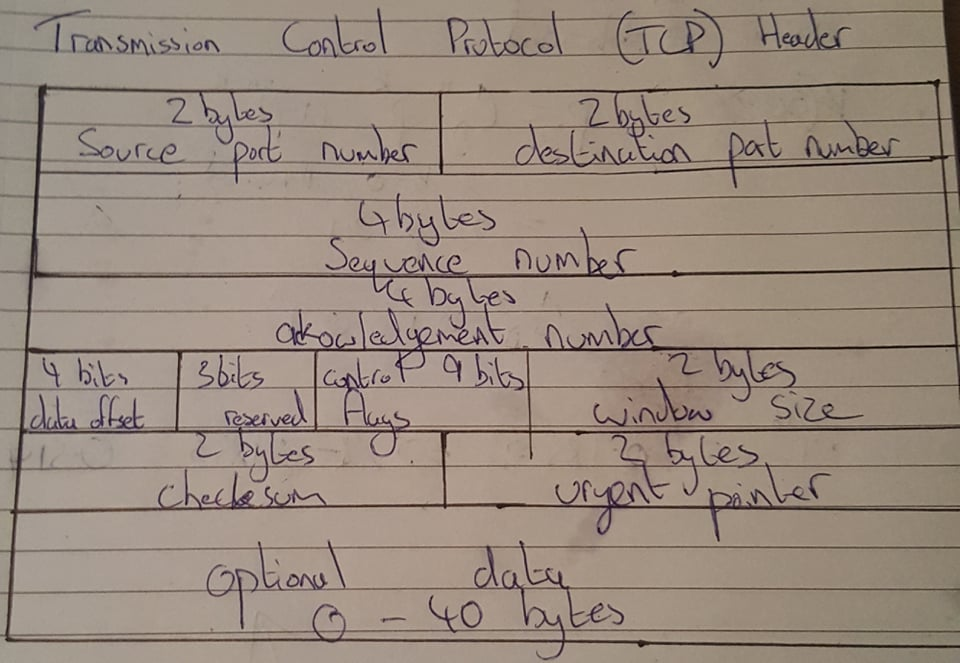 Transmission Control Protocol (TCP) Header
2 bytes
Source port number
2 bytes
destination port number
4 bytes
Sequence number
4 bytes
akowledgement number
4 bits
data offset
3bits
reserved
control 9 bits
flags
2 bytes
window size
2 bytes
Checksum
2 bytes
urgent pointer
optional data
0 - 40 bytes